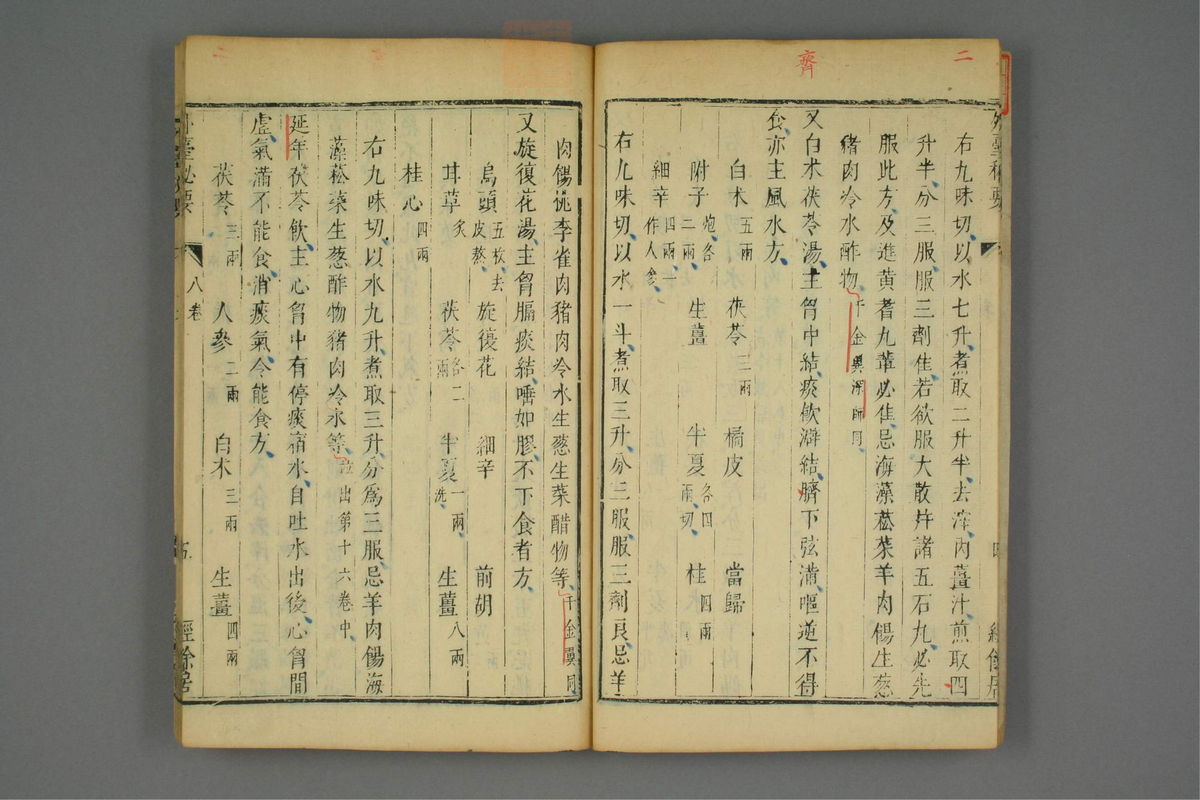 二
齊
外臺秘要
右九味切以水七升煮取二升半去滓內薑汁煎取四
升半分三服服三劑佳若欲服大散并諸五石丸必先
服此方及進黃耆丸輩必佳忌海藻菘菜羊肉餳生葱
猪肉冷水酢物千金翼深師同
又白朮茯苓湯主胷中結痰飲澼結臍下弦滿嘔逆不得
食亦主風水方
白朮五兩 茯苓三兩 橘皮 當歸
附子炮各二兩 生薑 半夏各四兩切 桂四兩
細辛四兩一作人參
右九味切以水一斗煮取三升分三服服三劑良忌羊
肉餳桃李雀肉豬肉冷水生葱生菜醋物等千金翼同
又旋復花湯主胷膈痰結唾如膠不下食者方
烏頭五枚去皮熬 旋復花 細辛 前胡
甘草炙 茯苓各二兩 半夏一兩洗 生薑八兩
桂心四兩
右九味切以水九升煮取三升分爲三服忌羊肉餳海
藻菘菜生葱酢物猪肉冷水等並出第十六卷中
延年茯苓飲主心胷中有停痰宿水自吐水出後心胷間
虛氣滿不能食消痰氣令能食方
茯苓三兩 人參二兩 白朮三兩 生薑四兩
八卷
經餘居